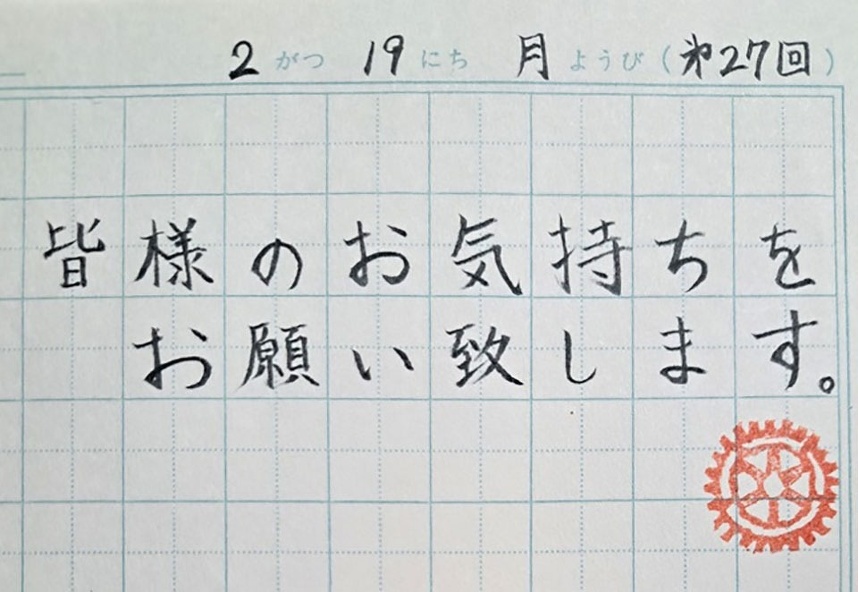 2がつ19にち月ようび(第27回)
皆様のお気持ちを
お願い致します。